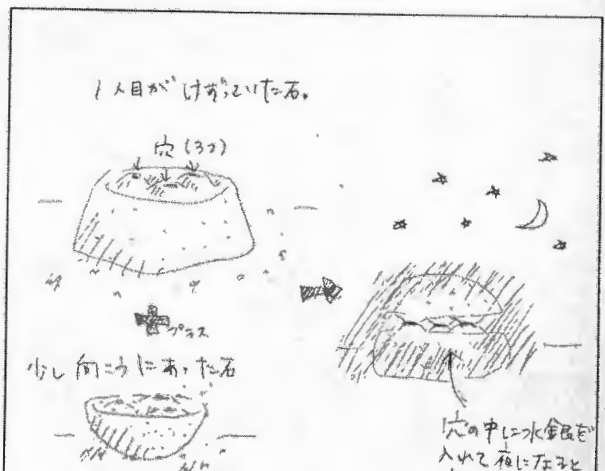 1人目が けずっていた石。
穴 (3コ)
プラス
少し向こうにあった石
穴の中に水銀を
入れて夜になると